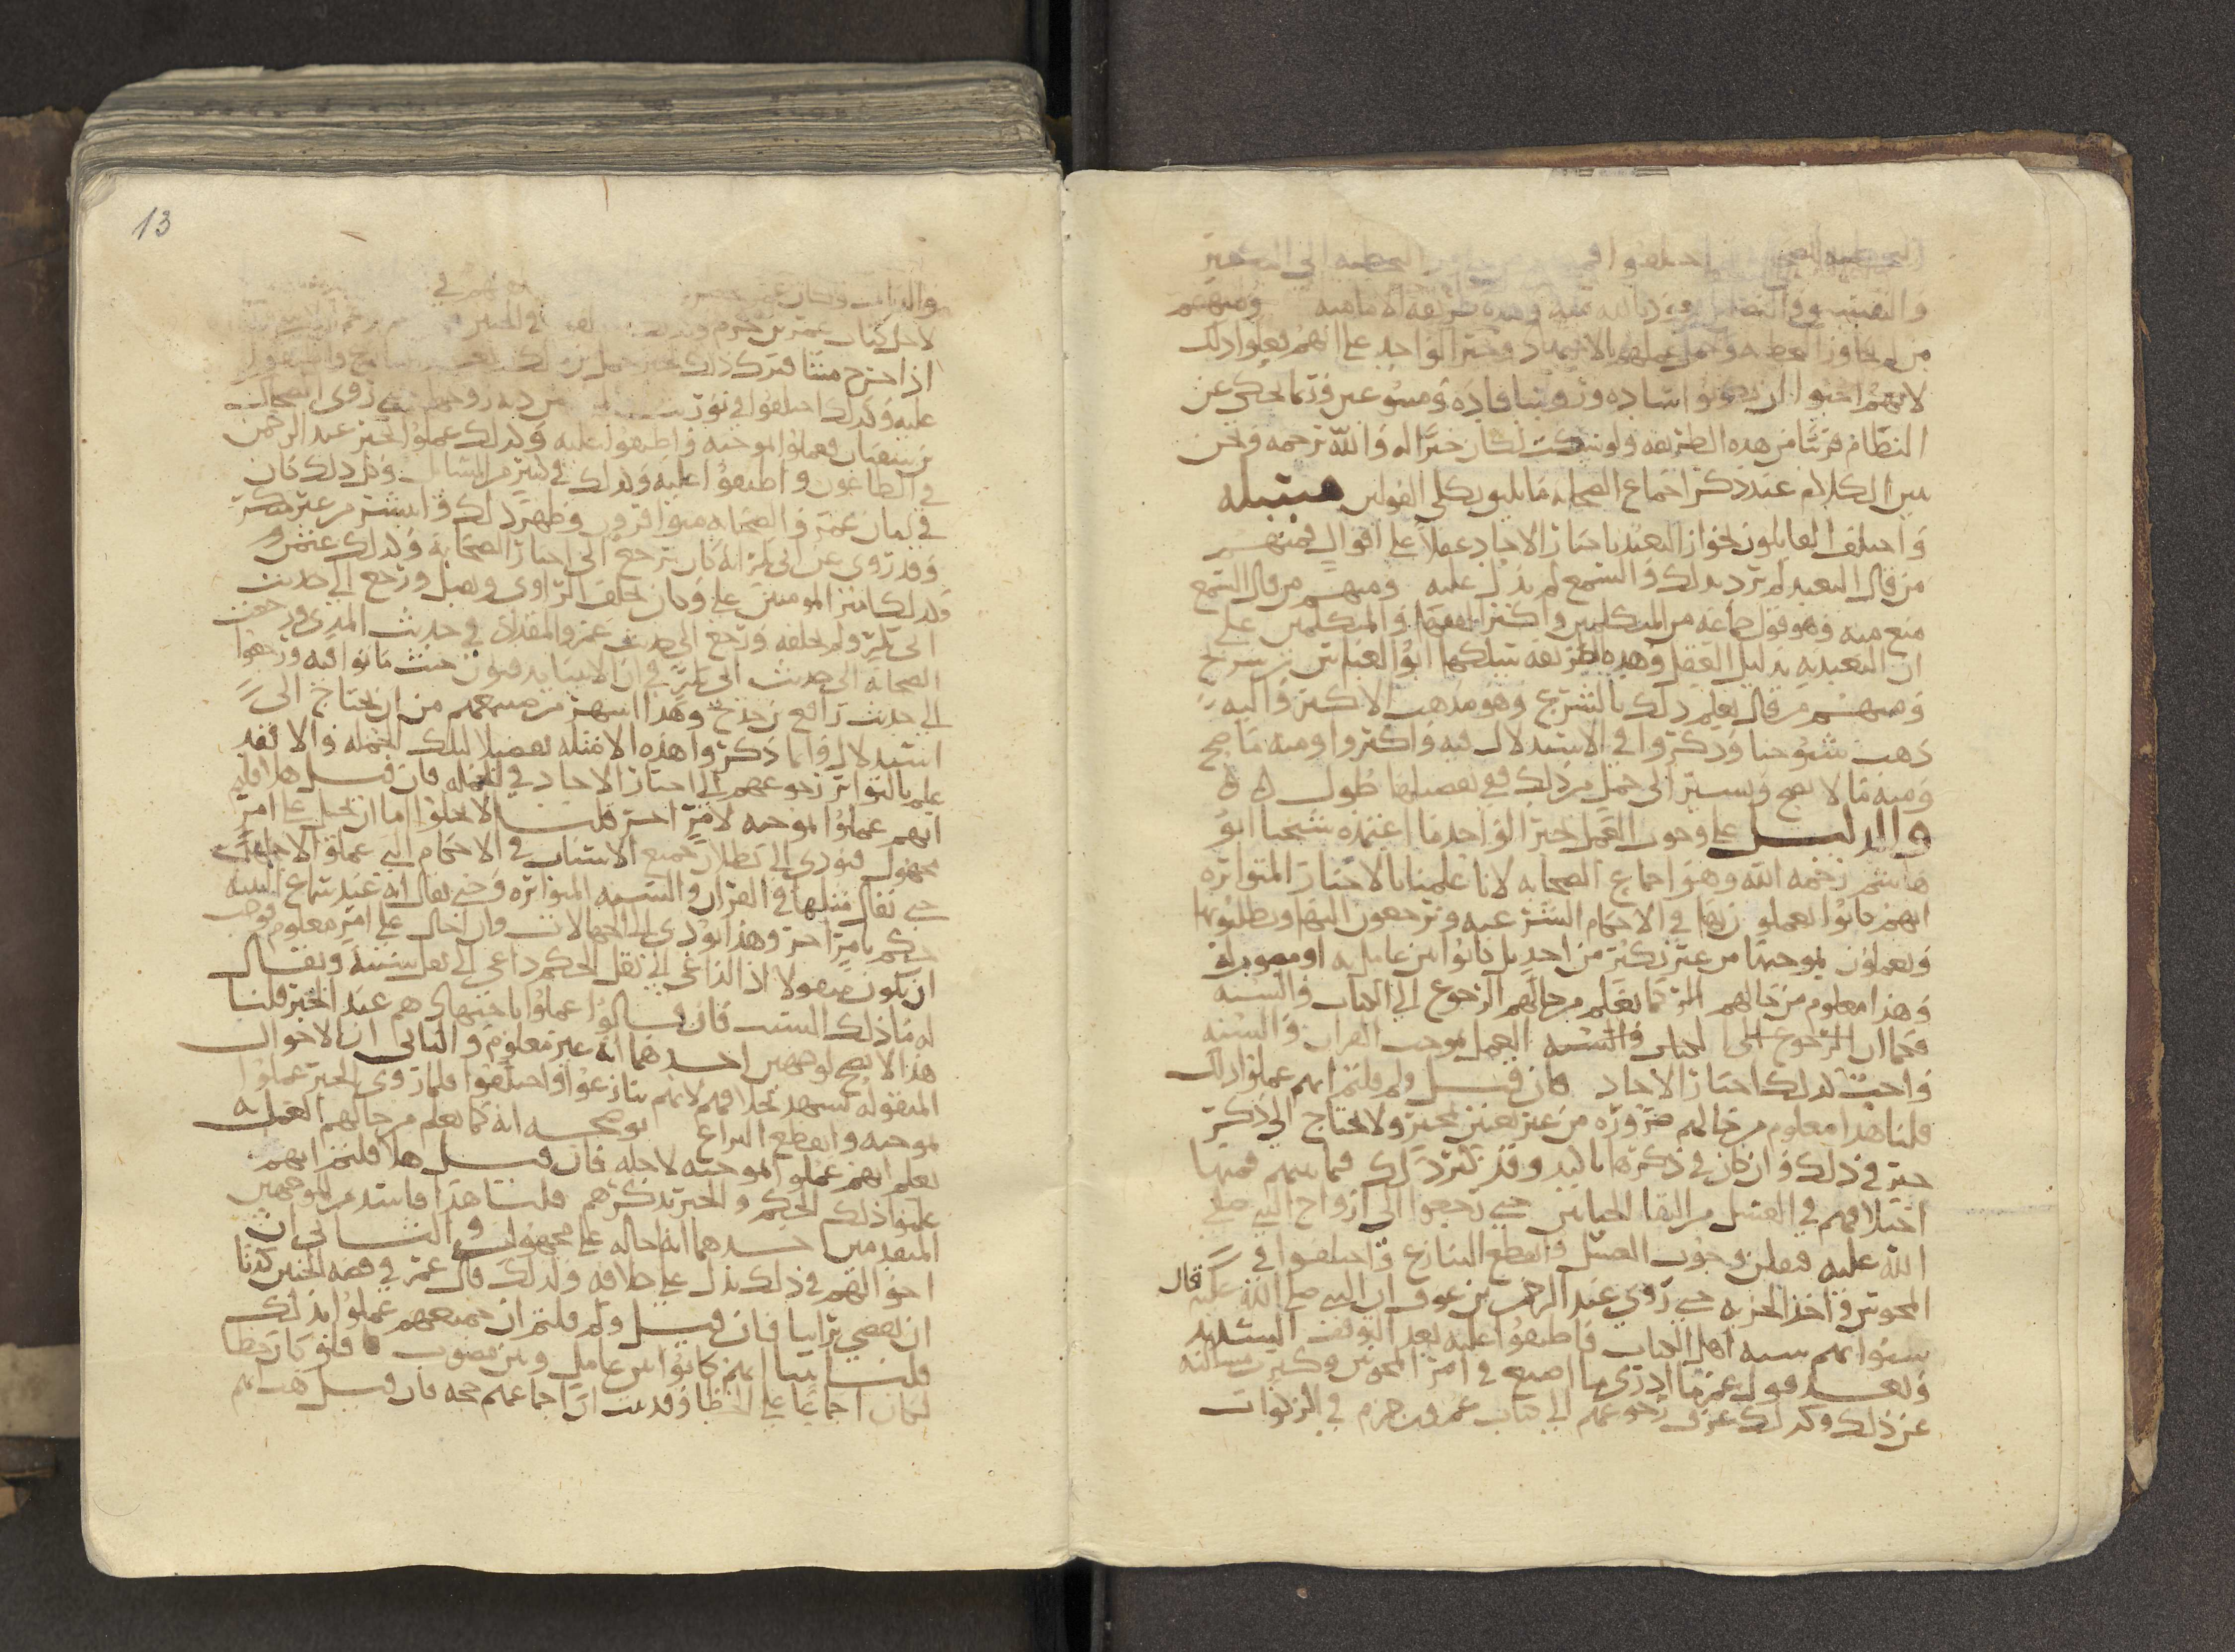 اختلفوا في الخطيه الى التكفير
والتفسيق وفي الناس وهذه طريقه الاماميه ومنهم
من تجاوز وحمل عملهم بالاجتهاد وخبر الواحد على انهم فعلوا ذلك
لانهم احبوا ان يكونوا ساده وقاده ومتبوعين وربما يحكى عن
النظام قريبا من هذه الطريقه ولو سكت لكان خيرا له والله ترحمه ونحن
نبين الكلام عند ذكر اجماع الصحابه ما يليق بكلى القولين مسئله
واختلف القايلون بجواز التعبد باخبار الاحاد عقلا على اقوال فمنهم
من قال التعبد لم يرد بذلك والسمع لم يدل عليه ومنهم من قال السمع
منع منه وهو قول جماعه من المتكلمين واكثر الفقها والمتكلمين على
ان التعبد به بدليل العقل وهذه طريقه سلكها ابو العباس بن سريج
ومنهم من قال نعلم ذلك بالشرع وهو مذهب الاكثر واليه
ذهب شيوخنا وذكروا في الاستدلال فيه واكثروا ومنه ما يصح
ومنه ما لا يصح ونشير الى جمل من ذلك ففي تفصيلها طول ه ه
والدليل على وجوب العمل بخبر الواحد ما اعتمده شيخنا ابو
هاشم رحمه الله وهو اجماع الصحابه لانا علمنا بالاخبار المتواتره
انهم كانوا يعملون بها في الاحكام الشرعيه ويرجعون اليها ويطلبونها
ويعملون بموجبها من غير نكير من احد بل كانوا بين عامل به او مصوب له
وهذا معلوم من حالهم كما نعلم من حالهم الرجوع الى الكتاب والسنه
فكما ان الرجوع الى الكتاب والسنه العمل بموجب القران والسنه
واجب كذلك اخبار الاحاد فان قيل ولم قلتم انهم عملوا بذلك
قلنا هذا معلوم من حالهم ضروره من غير تعيين بخبر ولا يحتاج الى ذكر
خبر في ذلك وان كان في ذكرها تاكيد وقد كثر ذلك فيما بينهم فمنها
اختلافهم في الغسل من التقا الختانين حتى رجعوا الى ازواج النبي صلى
الله عليه فعلمن وجوب الغسل وانقطع التنازع واختلفوا في
المجوس واخذ الجزيه حتى روى عبد الرحمن بن عوف ان النبي صلى الله عليه قال
سنوا بهم سنه اهل الكتاب فاطبقوا عليه بعد التوقف الشديد
وبعد قول عمر ما ادري ما اصنع في امر المجوس وكثرت مسالته
عن ذلك وكذلك عرف رجوعهم الى كتاب عمرو بن حزم في الزكوات
13
والديات وكان عمر في
لاجل كتاب عمرو بن حزم
اذا خرج ميتا فترك ذلك بخبر حمل بن مالك
عليه وكذلك اختلفوا في توريث من ديه زوجها حتى روى الضحاك
بن سفيان فعملوا بموجبه واطبقوا عليه وكذلك عملوا بخبر عبد الرحمن
في الطاعون واطبقوا عليه وكذلك في كثير من المسائل وكل ذلك كان
في زمان عمر والصحابه متوافرون وظهر ذلك وانتشر من غير منكر
وقد روى عن ابي بكر انه كان يرجع الى اخبار الصحابه وكذلك عثمن و
كذلك امير المومنين على وكان يحلف الراوي ويقبل ورجع الى حديث
ابي بكر ولم يحلفه ورجع الى حديث عمر والمقداد في حديث المذي ورجعت
الصحابه الى حديث ابي بكر في ان الانبيا يدفنون حيث ماتوا فيه ورجعوا
الى حديث رافع بن خديج وهذا اشهر من جميعهم من ان يحتاج الى
استدلال وانما ذكروا هذه الامثله تفصيلا لتلك الجمله والا فقد
علم بالتواتر رجوعهم الى اخبار الاحاد في الجمله فان قيل هلا قلتم
انهم عملوا بموجبه لامر اخر قلنا لا يخلوا اما ان يحيل على امر
مجهول فيودي الى بطلان جميع الاسباب في الاحكام التي عملوا لاجلها
حتى يقال مثلها في القران والسنه المتواتره وحتى يقال انه عند سماع البينه
حكم بامر اخر وهذا يودي الى الجهالات وان احال على امر معلوم فوجب
ان يكون منقولا اذ الداعي الى نقل الحكم داعي الى نقل سببه ويقال
له ما ذلك السبب فان قالوا عملوا باجتهادهم عند الخبر قلنا
هذا لا يصح لوجهين احدهما انه غير معلوم والثاني ان الاحوال
المنقوله تشهد بخلافهم لانهم تنازعوا واختلفوا فلما روى الخبر عملوا
بموجبه وانقطع النزاع يوضحه انه كما نعلم من حالهم العمل به
نعلم انهم عملوا بموجبه لاجله فان قيل هلا قلتم انهم
علموا ذلك الحكم والخبر تذكرهم قلنا هذا فاسد من الوجهين
المتقدمين احدهما انه احاله على مجهول والثاني ان
احوالهم في ذلك تدل على خلافه ولذلك قال عمر في قصه الجنين كدنا
ان نقضي براينا فان قيل ولم قلتم ان جميعهم عملوا بذلك
قلنا بينا انهم كانوا بين عامل وبين مصوب ه فلو كان خطا
لكان اجماعا على الخطا وقد ثبت ان اجماعهم حجه فان قيل هب انهم